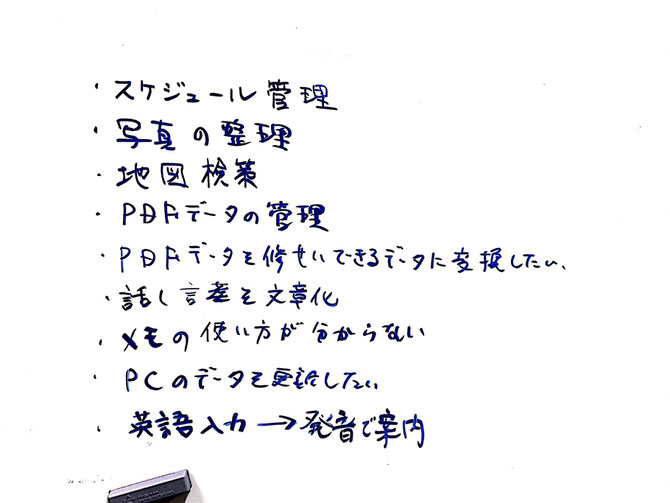 ・スケジュール管理
・写真の整理
・地図検策
・PDFデータの管理
・PDFデータを修せいできるデータに変換したい、
・話し言葉を文章化
・メモの使い方が分からない
・PCのデータを更新したい
・英語入力→発音で案内